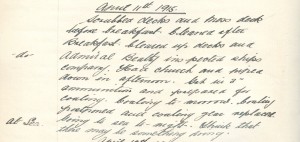 April 11th 1915.
Scrubbed decks and mess deck
before breakfast. Cleaned after
breakfast. Cleared up decks and
do Admiral Beatty inspected ships
company. Church and
down in afternoon. Got in
ammunition and prepared for
coaling. Coaling to morrow. Coaling
postponed and
At Sea going to sea to night. Think that
there may be something doing.